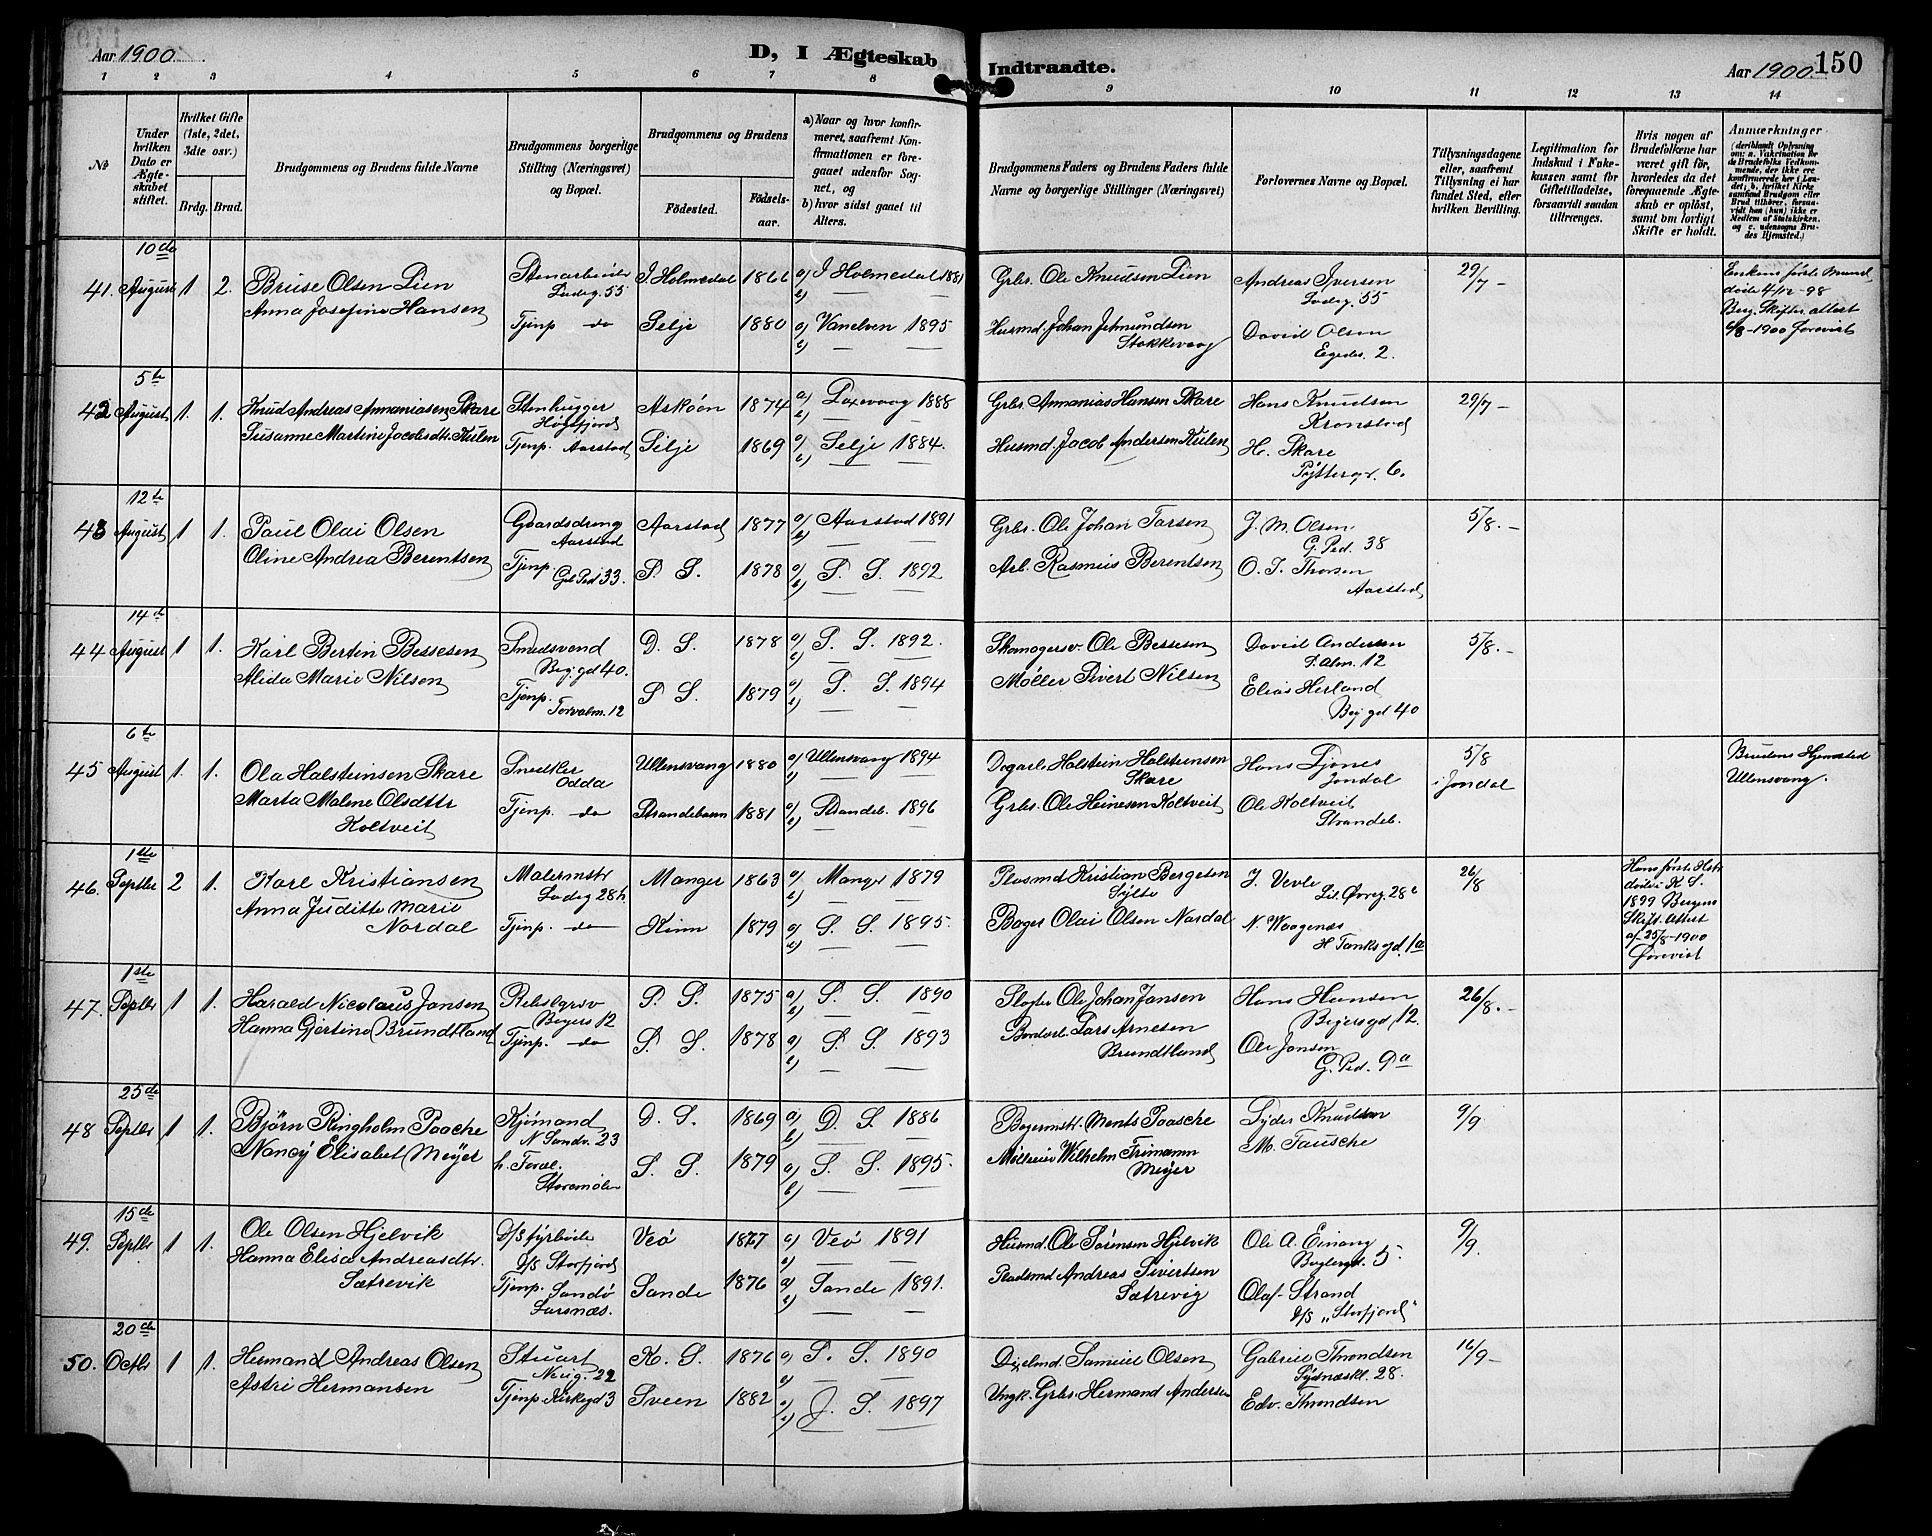 Aar 1900.
D, I Ægteskab Indtraadte.
Aar 1900. 150
1 2 3 4 5 6 7 8 9 10 11 12 13 14
No
Under hvilken Dato er Ægteskabet stiftet.
Hvilket Gifte (1ste, 2det, 3die osv.)
Brdg. Brud.
Brudgommens og Brudens fulde Navne
Brudgommens borgerlige Stilling (Næringsvei) og Bopæl.
Brudgommens og Brudens
Fødested.
Fødselsaar.
a) Naar og hvor konfirmeret, saafremt Konfirmationen er foregaaet udenfor Sognet, og
b) hvor sidst gaaet til Alters.
Brudgommens Faders og Brudens Faders fulde Navne og borgerlige Stillinger (Næringsvei)
Forlovernes Navne og Bopæl.
Tillysningsdagene eller, saafremt Tillysning ei har fundet Sted, efter hvilken Bevilling.
Legitimation for Indskud i Enkekassen samt for Giftetilladelse, forsaavidt saadan tiltrænges.
Hvis nogen af Brudefolkene har været gift før, hvorledes da det foregaaende Ægteskab er opløst, samt om lovligt Skifte er holdt.
Anmærkninger (deriblandt Oplysning om: a. Vakcination for de Brudefolks Vedkommende, der ikke ere konfirmerede her i Landet; b. hvilket Kirkesamfund Brudgom eller Brud tilhører, forsaavidt han (hun) ikke er Medlem af Statskirken, og c. udensogns Brudes Hjemsted.)
10de
41. August 1 2. Bruse Olsen Lien Stenarbeider Ladeg. 55 I. Holmedal 1866 a) I Holmedal 1881 Grbr. Ole Knudsen Lien Andreas Iversen Ladeg. 55 29/7 – Enkens første Mand døde 4/12-98
Anna Josefine Hansen Tjenp do Selje 1880 a) Vanelven 1895 Husmd. Johan Johnundsen Stokkevaag David Olsen Egedes. 2. Berg. Skifter. attest 6/8-1900 forevist
5te
42 August 1. 1. Knud Andreas Annaniasen Skare Stenhugger Høgsfjord Askøen 1874 a) Laxevaag 1888 Grbr. Annanias Hansen Skare Hans Knudsen Kronstad 29/7 –
Susanne Martine Jacobsdtr. Kulen Tjenp. Aarstad Silje 1869 a) Selje 1884. Husmd. Jacob Andersen Kulen H. Skare Pyttergr. 6.
12te
43 August 1 1. Paul Olai Olsen Gaardsdreng Aarstad Aarstad 1877 a) Aarstad 1891 Grbr. Ole Johan Larsen J. M. Olsen G. Ped. 38 5/8. –
Oline Andrea Berentsen Tjenp. Gl. Ped 33. S. S. 1878 a) S. S. 1892 Arb. Rasmus Berentsen O. J. Thorsen Aarstad
14de
44 August 1 1. Karl Bertin Bessesen Smedsvend Bøy. gd 40. D. S. 1878 a) S. S. 1892. Skomagersv. Ole Bessesen David Andersen T. Alm. 12 5/8. –
Alida Marie Nilsen Tjenp. Torvalm. 12 S S. 1879 a) S. S. 1894 Møller Sivert Nilsen Elias Herland Bøy gd 40
6te
45 August 1. 1. Ola Halsteinsen Skare Snedker Odda Ullensvang 1880 a) Ullensvang 1894 Dagarb. Halstein Halsteinsen Skare Hans Ljones Jondal 5/8 i Jondal Brudens Hjemsted Ullensvang.
Marta Malene Olsdttr Koltveit Tjenp. do Strandebarm 1881 a) Strandeb. 1896 Grbr. Ole Heinesen Koltveit Ole Koltveit Strandeb.
1ste
46. Septbr 2 1. Karl Kristiansen Malermstr Ladeg 28h Manger 1863 a) Manger 1879 Pladsmd Kristian Bergesen Sylte J. Vevle Lil. Øvreg 28c 26/8 Hans første Hstr døde i K. S. 1899 Bergens Skift. attest af 25/8-1900 forevist
Anna Juditte Marie Nordal Tjenp. do Kinn 1879 a) S. S. 1895. Bager Olai Olsen Nordal N. Waagenæs H Tanks gd. 1a
1ste
47. Septbr 1 1. Harald Nicolaus Jansen Rebslgrsv Beyers 12 S. S. 1875 a) S. S. 1890 Slagter Ole Johan Jansen Hans Hansen Beyersgd 12. 26/8. –
Hanna Gjertine Brundtland Tjenp. do S. S. 1878 a) S. S. 1893 Bordarb. Lars Arnesen Brundtland Ole Jansen G. Ped. 9a
25de
48 Septbr 1 1. Bjørn Ringholm Paasche Kjømand N Sandv. 23 D. S. 1869 a) D. S. 1886 Bagermstr. Ments Paasche Lyder Knudsen 9/9.
Nancy Elisabet Meyer h. Foræl. Storemølen S. S. 1879 a) S. S. 1895. Mølleeier Wilhelm Frimann Meyer M. Paasche
15de
49. Septbr 1 1. Ole Olsen Hjelvik D/S fyrbøder D/S Storfjord Veø 1877 a) Veø 1891 Husmd. Ole Sørensen Hjelvik Ole A. Einang Baglergd. 5 9/9.
Hanna Elisa Andreasdtr. Sætrevik Tjenp. Sandø Larsnæs. Sande 1876 a) Sande 1891. Pladsmd Andreas Sivertsen Sætrevig Olaf Strand D/S "Storfjord"
20de
50. Octbr 1 1. Hermand Andreas Olsen Stuart Neug. 22 K. S. 1876 a) S. S. 1890 Dixelmd. Samuel Olsen Gabriel Throndsen Sydnæskl. 28. 16/9 –
Astri Hermansen Tjenp. Kirkegd 3 Sveen 1882 a) J. S. 1897 Ungk. Grbr. Hermand Andersen Edv. Throndsen